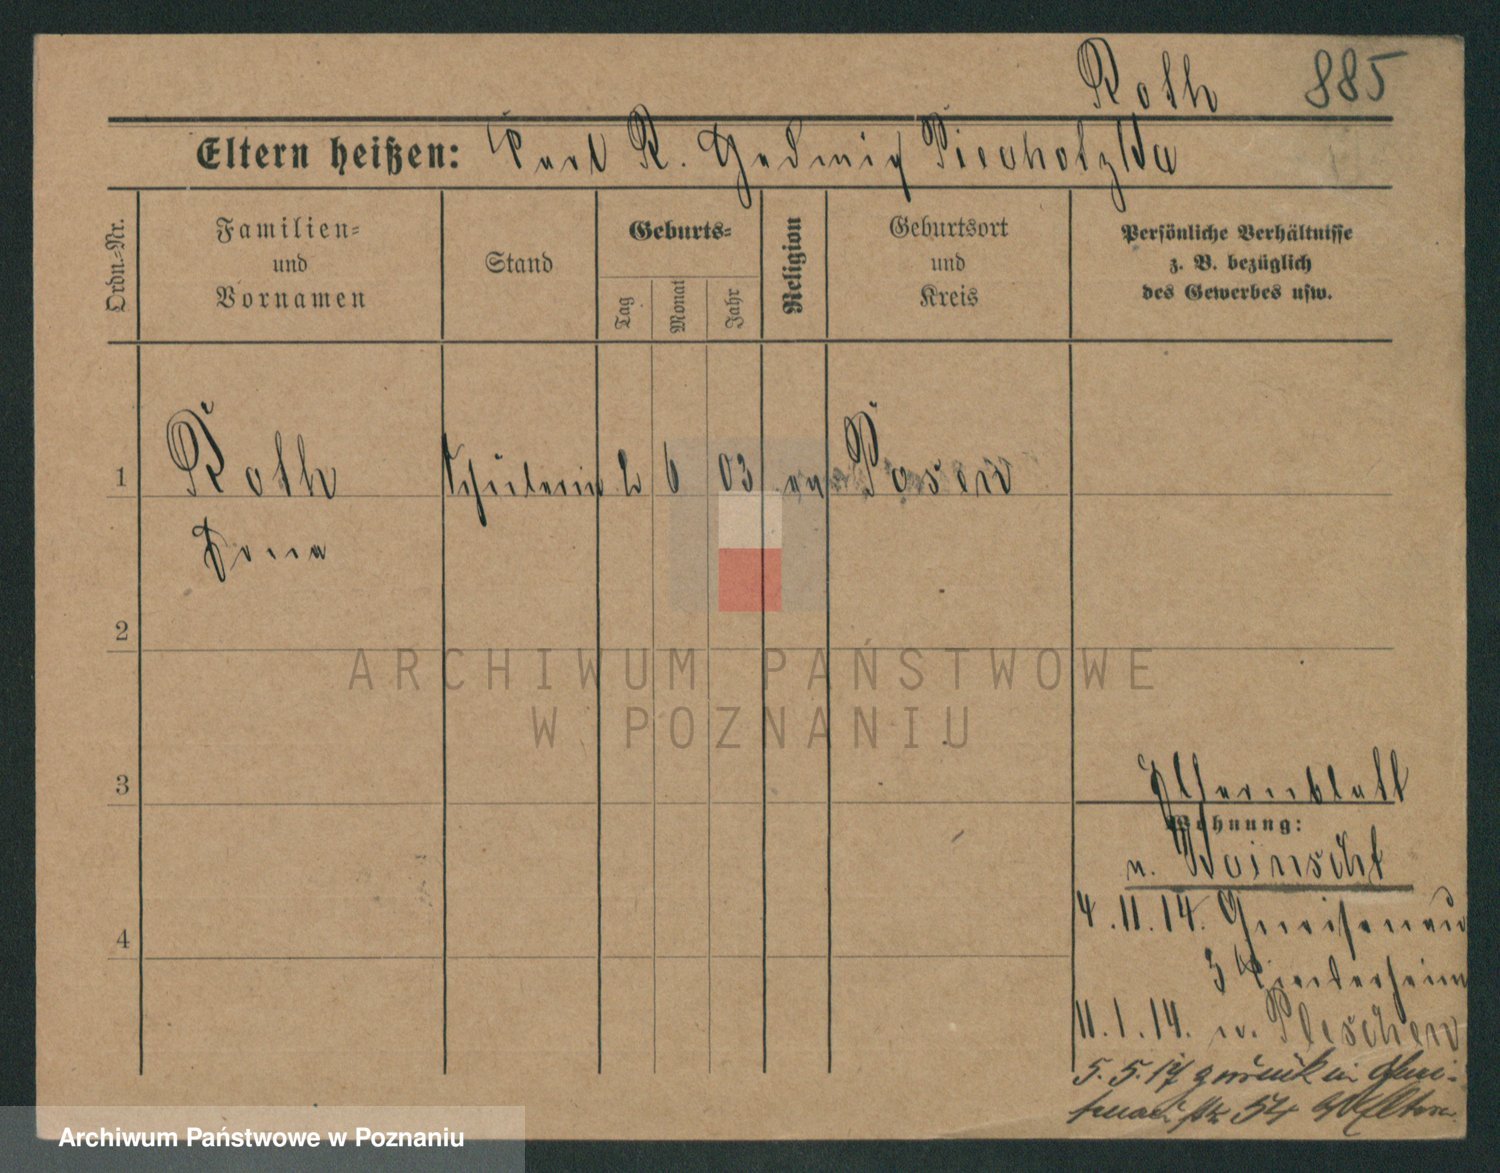 Roth 885
Eltern heißen: Karl R. Hedwig Piecholzka
Ordn.-Nr.
Familien- und Vornamen
Stand
Geburts-
Tag
Monat
Jahr
Religion
Geburtsort und Kreis
Persönliche Verhältnisse z. B. bezüglich des Gewerbes usw.
1 Roth Schülerin 2 6 03 ev Posen
2
3
4
Elternblatt
Wohnung:
n. Woinscht
4.11.14. Gneisenau
3 Kinderheim
11.1.14. n. Pleschen
5.5.17 zurück in Gnei-
senaustr 54 Eltern
ARCHIWUM PAŃSTWOWE
W POZNANIU
Archiwum Państwowe w Poznaniu